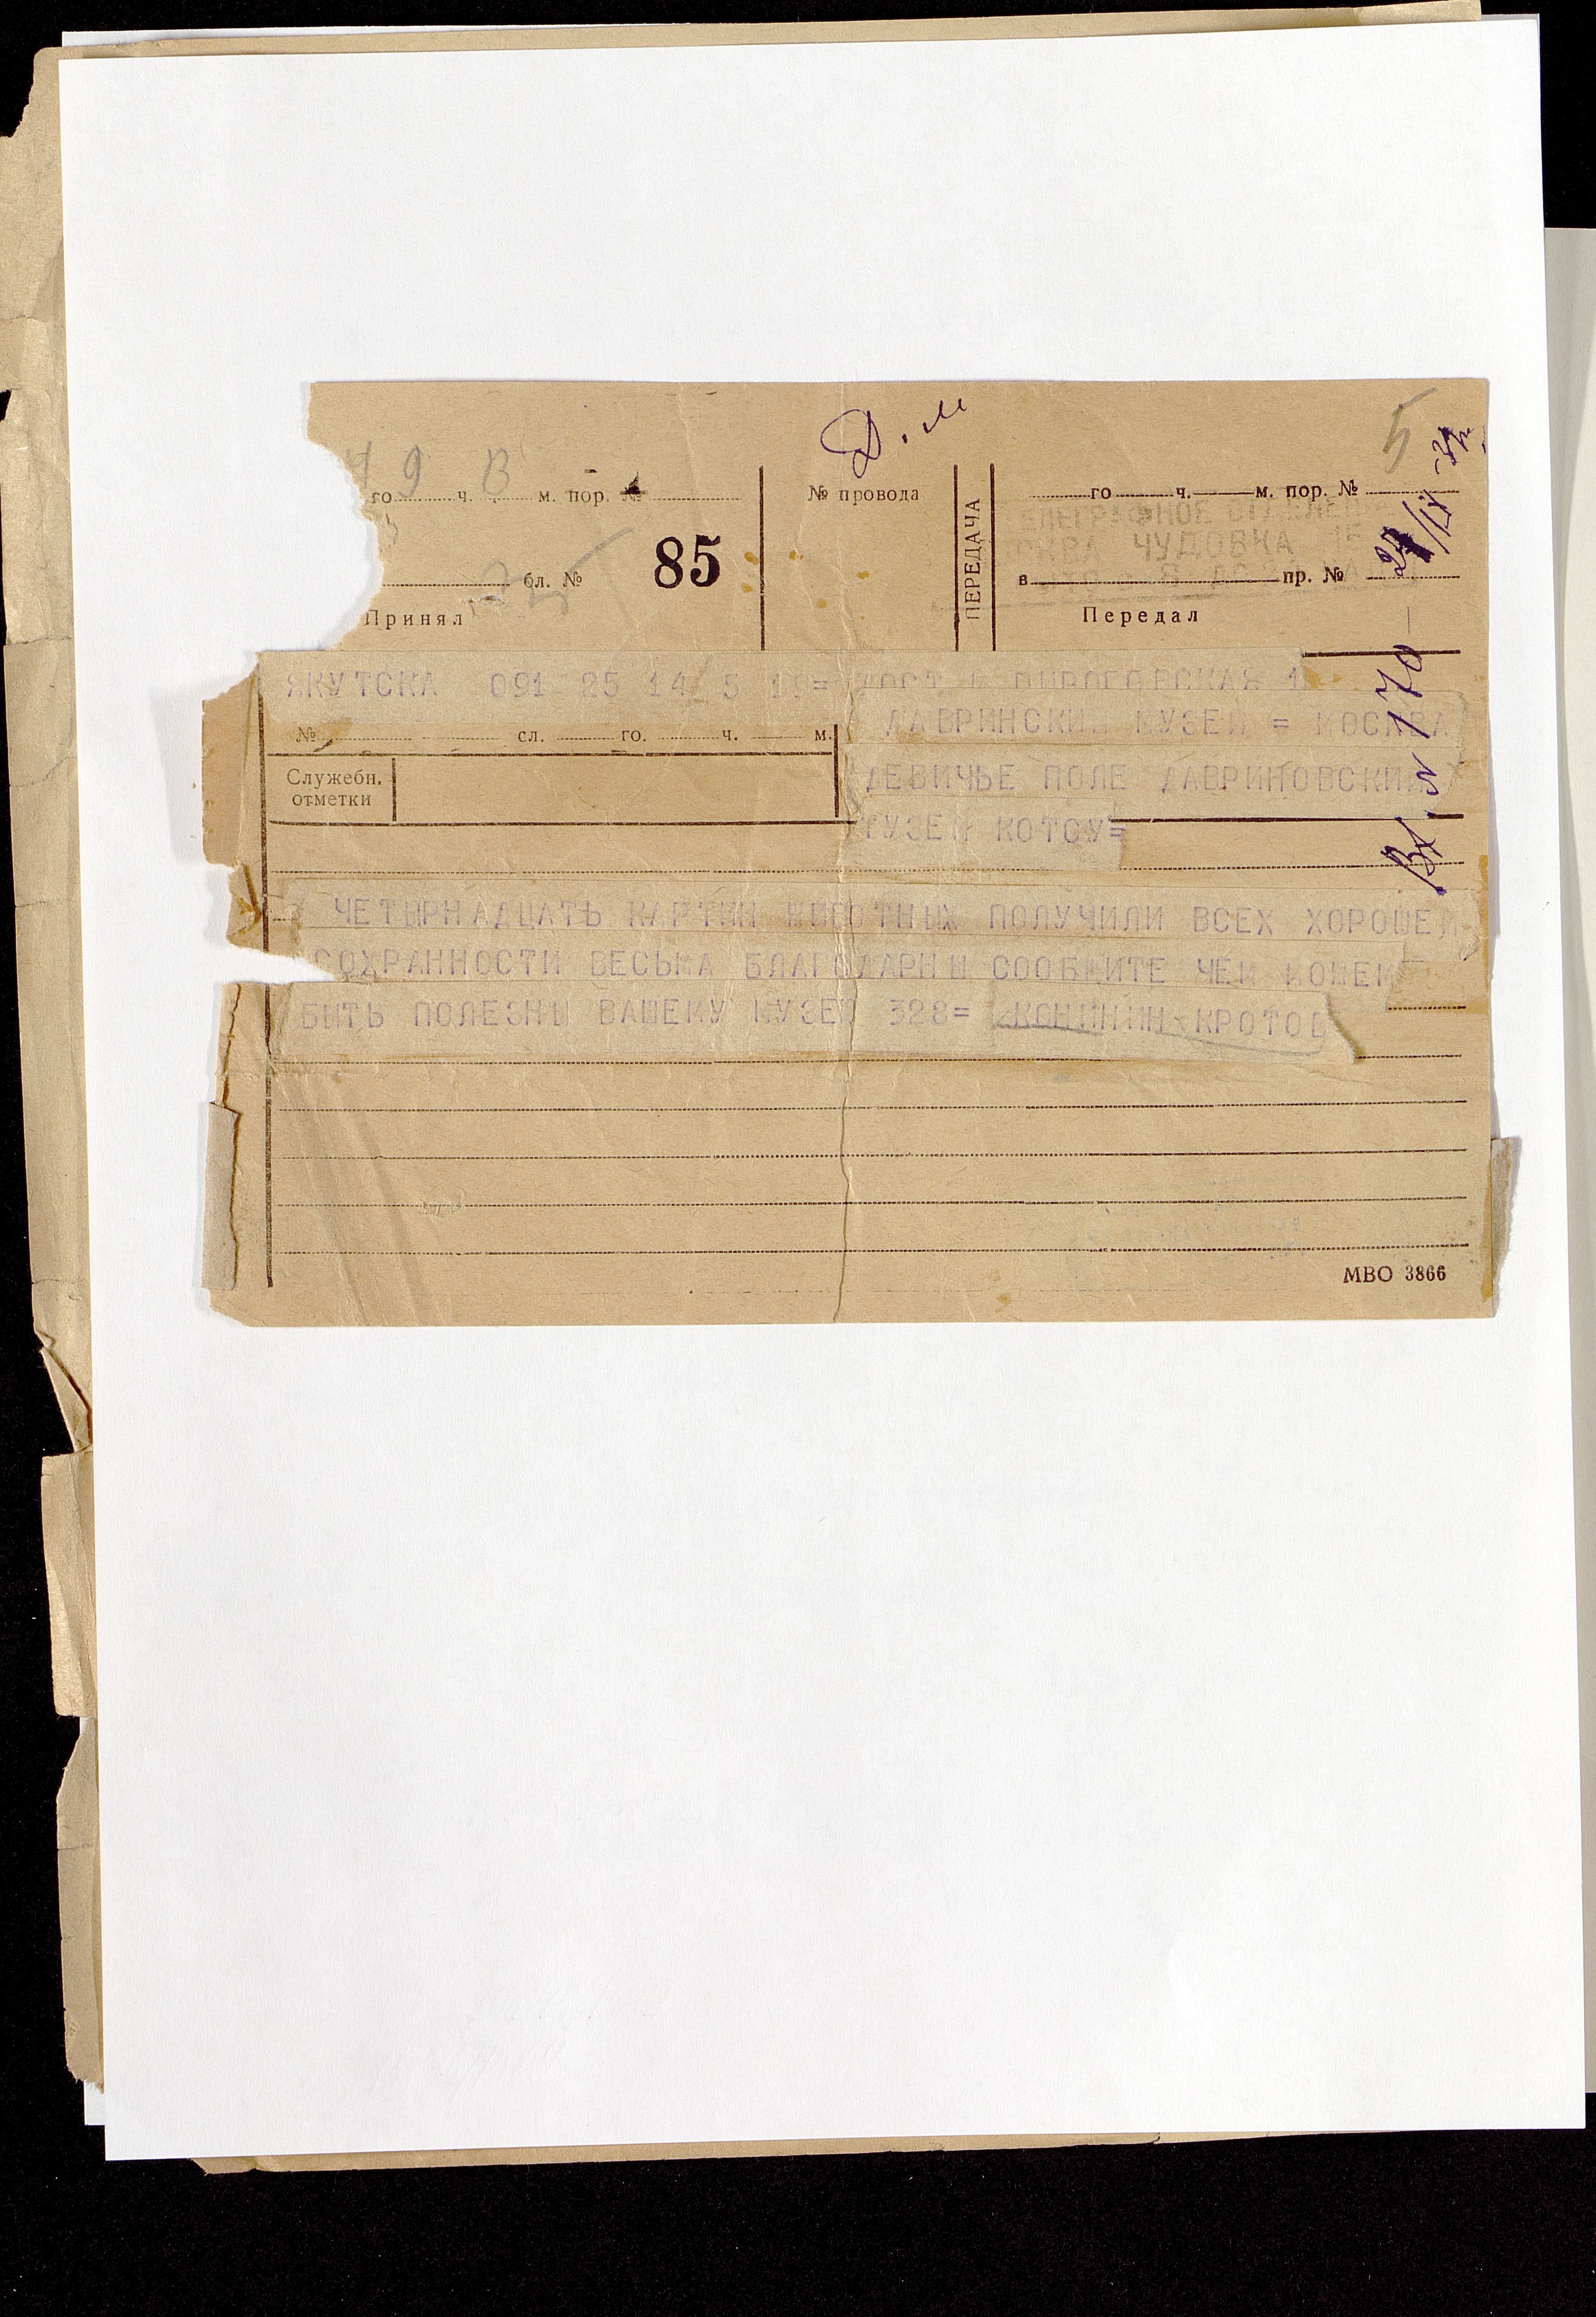 Д. м
5
9 В
го ч. м. пор. №
№ провода
ПЕРЕДАЧА
го ч. м. пор. №
ТЕЛЕГРАФНОЕ ОТДЕЛЕН
ЧУДОВКА 15
бл. № 85
в пр. №
Принял
Передал
Вх. № 170 —
ЯКУТСКА 091 25 14 5 19= ПИРОГОВСКАЯ 1
ДАВРИНСКИЙ МУЗЕЙ = МОСКВА
№ сл. го. ч. м.
ДЕВИЧЬЕ ПОЛЕ ДАВРИНОВСКИЙ
Служебн.
отметки
МУЗЕЙ КОТОУ=
ЧЕТЫРНАДЦАТЬ КАРТИН ЖИВОТНЫХ ПОЛУЧИЛИ ВСЕХ ХОРОШЕЙ
СОХРАННОСТИ ВЕСЬМА БЛАГОДАРНЫ СООБЩИТЕ ЧЕМ МОЖЕМ
БЫТЬ ПОЛЕЗНЫ ВАШЕМУ МУЗЕЮ 328= КРОТОВ
МВО 3866